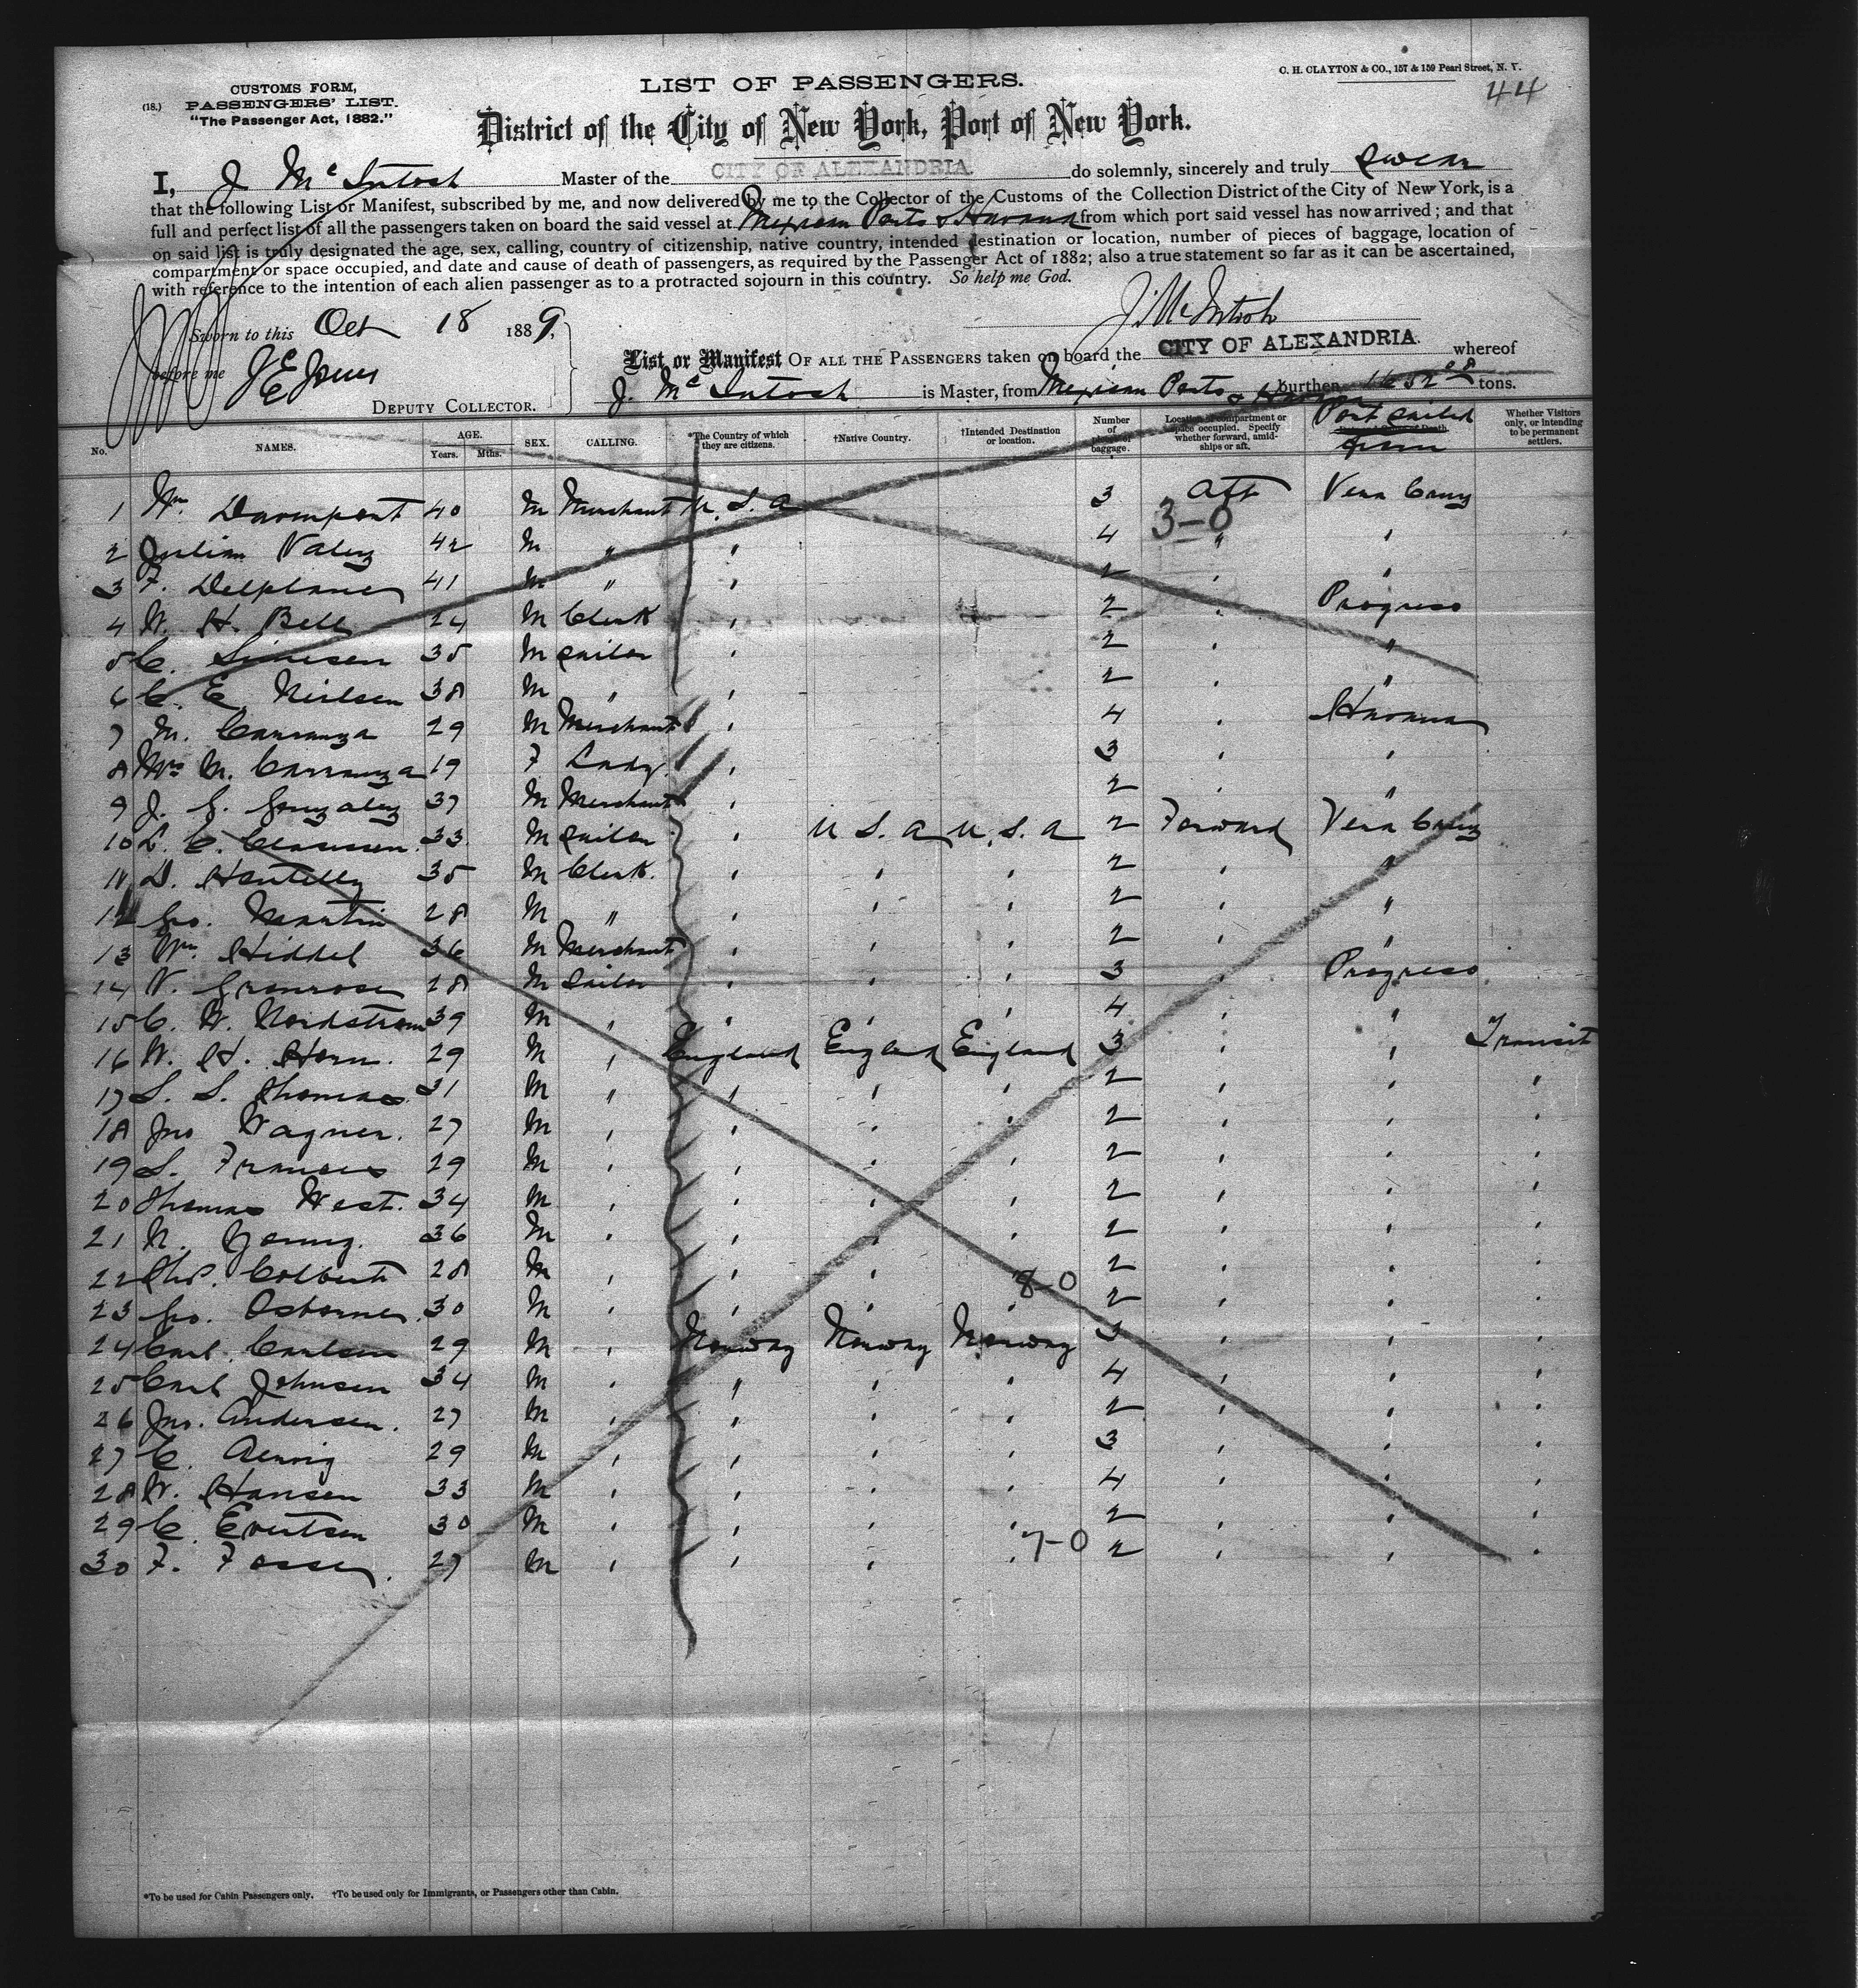 CUSTOMS FORM,
(18.) PASSENGERS' LIST.
"The Passenger Act, 1882."
LIST OF PASSENGERS.
C. H. CLAYTON & CO., 157 & 159 Pearl Street, N. Y.
44
District of the City of New York, Port of New York.
I, J McIntosh Master of the CITY OF ALEXANDRIA do solemnly, sincerely and truly swear
that the following List or Manifest, subscribed by me, and now delivered by me to the Collector of the Customs of the Collection District of the City of New York, is a
full and perfect list of all the passengers taken on board the said vessel at Mexican Ports & Havana from which port said vessel has now arrived; and that
on said list is truly designated the age, sex, calling, country of citizenship, native country, intended destination or location, number of pieces of baggage, location of
compartment or space occupied, and date and cause of death of passengers, as required by the Passenger Act of 1882; also a true statement so far as it can be ascertained,
with reference to the intention of each alien passenger as to a protracted sojourn in this country. So help me God.
J. McIntosh
Sworn to this Oct 18 1889,
before me
DEPUTY COLLECTOR.
List or Manifest OF ALL THE PASSENGERS taken on board the CITY OF ALEXANDRIA. whereof
J. McIntosh is Master, from Mexican Ports & Havana burthen tons.
No. NAMES. AGE. Years. Mths. SEX. CALLING. *The Country of which they are citizens. †Native Country. †Intended Destination or location. Number of pieces of baggage. Location of compartment or space occupied. Specify whether forward, amidships or aft. Port sailed from Whether Visitors only, or intending to be permanent settlers.
1 Wm Davenport 40 M Merchant U. S. A 3 Aft Vera Cruz
3-0
2 Julian Valez 42 M " ' 4 " '
3 F. Delplanes 41 M " ' 2 ' '
4 W. H. Bell 24 M Clerk ' 2 ' Progreso
5 C. 35 M Sailor ' 2 ' "
6 C. E. Neilsen 38 M ' ' 2 ' "
7 M. Carranza 29 M Merchant ' 4 ' Havana
8 Mrs M. Carranza 19 F Lady ' 3 ' '
9 J. G. Gonzalez 37 M Merchant ' 2 ' "
10 L. C. Claussen 33 M Sailor ' U S. A U. S. A 2 Forward Vera Cruz
11 D. 35 M Clerk. ' ' ' 2 ' "
12 Geo. Martin 28 M " ' ' ' 2 ' "
13 Wm Hiddel 36 M Merchant ' ' ' 2 ' "
14 N. Gronrose 28 M Sailor ' ' ' 3 ' Progreso
15 C. W. Nordstrom 39 M ' ' ' ' 4 ' '
16 W. H. Horn. 29 M ' England England England 3 ' ' Transit
17 S. S. Thomas. 31 M " ' ' ' 2 ' ' "
18 Jno Wagner. 27 M ' ' ' ' 2 ' ' '
19 S. Francis 29 M ' ' ' ' 2 ' ' '
20 Thomas West. 34 M ' ' ' ' 2 ' ' '
21 N. Young. 36 M ' ' ' ' 2 ' ' '
22 Chs. Colbert 28 M ' ' ' 8-0 2 ' ' '
23 Geo. Osborne. 30 M ' ' ' ' 2 ' ' '
24 Carl Carlsen 29 M ' Norway Norway Norway 3 ' ' '
25 Carl Johnsen 34 M ' " ' " 4 ' ' '
26 Jno. Andersen. 27 M ' ' ' ' 2 ' ' '
27 C. 29 M ' ' ' ' 3 ' ' '
28 W. Hansen 33 M ' ' ' ' 4 ' ' '
29 C. Evertsen 30 M ' ' ' ' 2 ' ' '
30 F. Fosse. 27 M ' ' ' ' 7-0 2 ' ' '
*To be used for Cabin Passengers only. †To be used only for Immigrants, or Passengers other than Cabin.